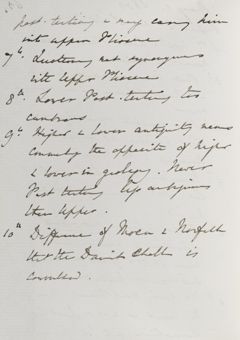 post-tertiary & may carry him
into upper Miocene
7th. Quaternary not synonymous
with Upper Miocene
8th. Lower Post-tertiary too
cumbrous
9th Higher & lower antiquity means
commonly the opposite of higher
& lower in geology. Newer
Post tertiary less ambiguous
than Upper.
10th Difference of Moen & Norfolk
that the Danish Chalk is